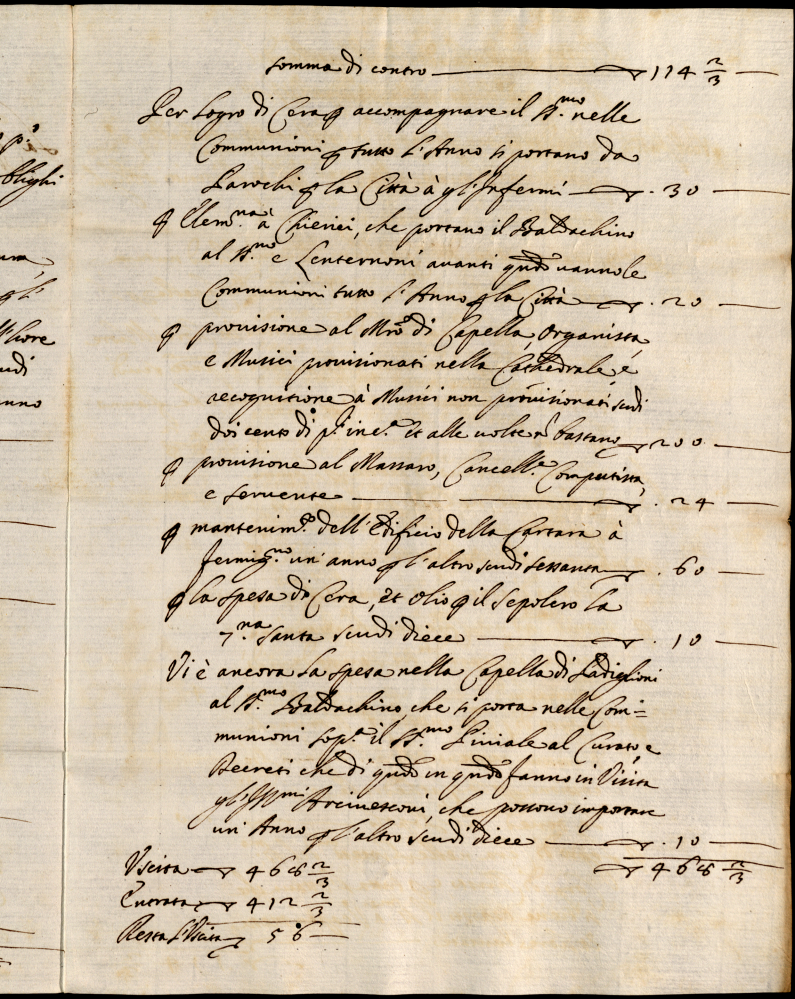 p.º
blighi
gl'
udi
anno
somma di contro ——— 114 2/3 —
Per logro di Cera p accompagnare il SS.mo nelle
Communioni p tutto l'Anno si portano da
Parochi p la Città à gl'Infermi — . 30 —
p Elem.na à Chierici, che portano il Baldachino
al SS.mo e Lenternoni auanti qñdo uanno le
Communioni tutto l'Anno p la Città — . 20 —
p prouisione al Mrõ di Capella, Organista
e Musici prouisionati nella Cathedrale, é
recognitione à Musici non prouisionati scudi
doicento di p.ñ inc.a et alle uolte ñ bastano — 200 —
p prouisione al Massaro, Cancell.e Computista,
e seruente ——— . 24 —
p mantenim.to dell'Edificio della Cartara à
fermig.no un'anno p l'altro scudi sessanta — . 60 —
p la spesa di Cera, et Olio p il Sepolcro la
7.na Santa scudi diece ——— . 10 —
Vi è ancora la spesa nella Capella di Padiglioni
al SS.mo Baldachino, che si porta nelle Com=
munioni sop.a il SS.mo Piuiale al Curato, e
Decreti che di qñdo in qñdo fanno in Visita
gl'Ill.mi Arciuescoui, che possono importare
un'Anno p l'altro scudi diece — . 10 —
468 2/3
Vscita — 468 2/3
Entrata — 412 2/3
Resta l'Vscita 56 —